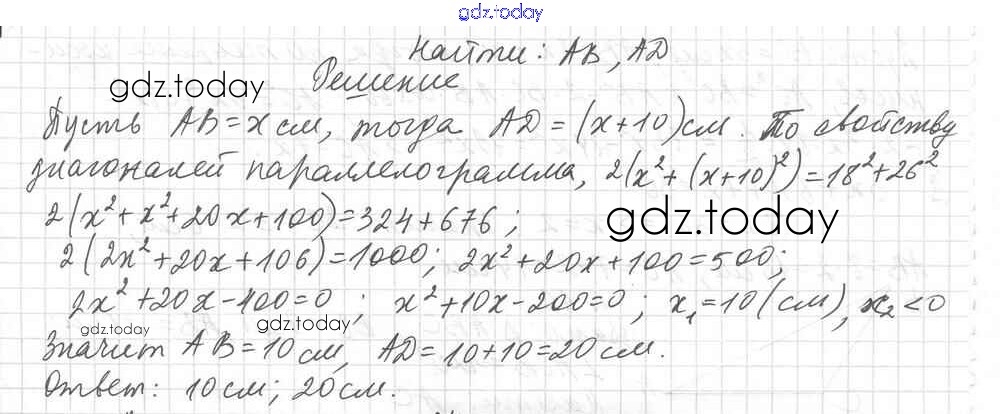 gdz.today
Найти: AB, AD
gdz.today
Решение
Пусть AB = x см, тогда AD = (x+10) см. По свойству
диагоналей параллелограмма, 2(x²+(x+10)²)=18²+26²
2(x²+x²+20x+100)=324+676;
gdz.today
2(2x²+20x+106)=1000; 2x²+20x+100=500;
2x²+20x-400=0; x²+10x-200=0; x₁=10(см), x₂<0
gdz.today gdz.today
Значит AB=10см, AD=10+10=20см.
Ответ: 10см; 20см.